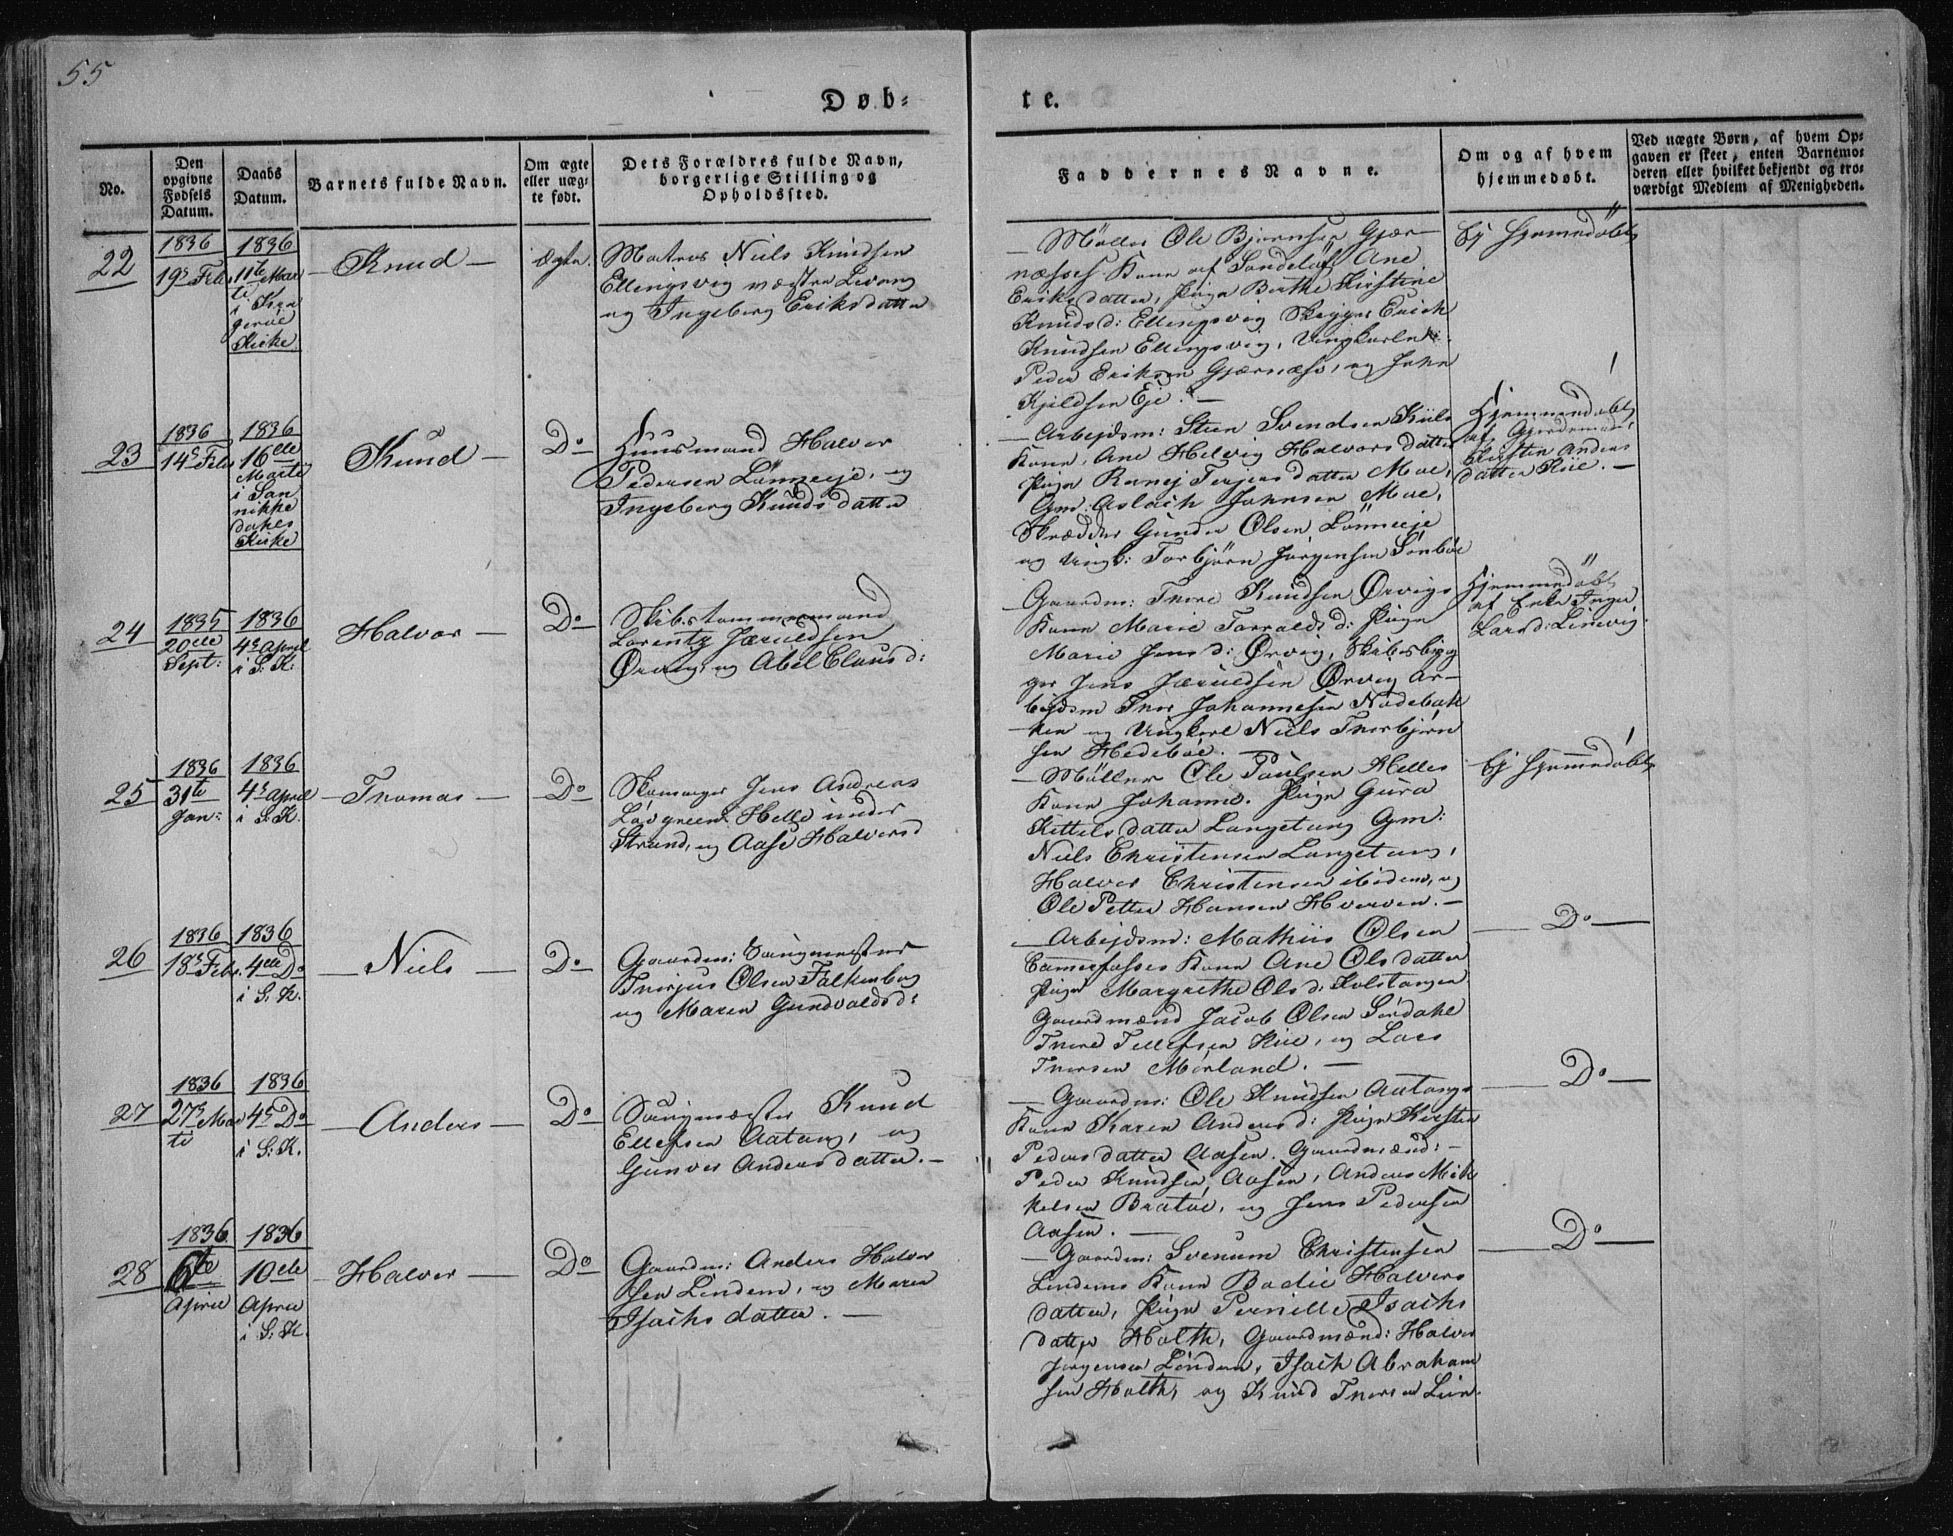 55
Døb-
te.
No.
Den
opgivne
Fødsels
Datum.
Daabs
Datum.
Barnets fulde Navn.
Om ægte
eller uæg-
te født.
Dets Forældres fulde Navn,
borgerlige Stilling og
Opholdssted.
Faddernes Navne.
Om og af hvem
hjemmedøbt.
Ved uægte Børn, af hvem Op-
gaven er skeet, enten Barnemo-
deren eller hvilket bekjendt og tro-
værdigt Medlem af Menigheden.
22
1836
19de Feb.
1836
11te Mar
ti
i Kra
gerøe
Kirke
Knud —
ægte.
Matros Niels Knudsen
Ellingsvig vestre Levang
og Ingeborg Eriksdatter
— Møller Ole Bjørnsen Gjær-
næsses Kone af Sandeløß Ane
Eriksdatter, Pige Berthe Kirstine
Knudsd: Ellingsvig Skipper Erich
Knudsen Ellingsvig, Ungkarlene:
Peder Eriksen Gjærnæss, og John
Kjeldsen Eje. —
Ej hjemmedøbt
23
1836
14de Feb.
1836
16de
Marti
i San
nikke
dahls
Kirke
Knud —
Do
Huusmand Halvor
Pedersen Lønneeje, og
Ingeborg Knudsdatter
— Arbejdsm: Steen Svendsen Kiils
Kone, Ane Helvig Halvorsdatter
Pige Ranej Terjesdatter Moe,
Gm: Aslach Johnsen Moe,
Skrædder Gunder Olsen Lønneeje
og Ungk: Torbjørn Jørgensen Sønbøe
Hjemmedøbt
af Gjordemod:
Kirsten Anders
datter Kiil. —
24
1835
20de
Sept:
1836
4de April
i S: K:
Halvor —
Do
Skibstømmermand
Lorentz Jaruldsen
Ørvig, og Abel Clausd:
— Gaardm: Thore Knudsen Ørvigs
Kone Marie Torvaldsd: Pige
Marie Jensd: Ørvig, Skibsbyg
ger Jens Jaruldsen Ørvig Ar-
bejdsm Thor Johannesen Nødebak
ken og Ungkarl Niels Thorbjørn
sen Hedebøe. —
Hjemmedøbt
af Enke Inger
Larsd: Linevig.
25
1836
31te
Jan:
1836
4de April
i S: K.
— Thomas —
Do
Skomager Jens Andreas
Løvgreen Helle under
Strand, og Aase Halvorsd
— Møller Ole Paulsen Helles
Kone Johanne. Pige Gura
Kittelsdatter Langetang Gm:
Niels Christensen Langetang,
Halvor Christensen ibidem, og
Ole Petter Hansen Hverven. —
Ej hjemmedøbt
26
1836
18de Feb.
1836
4de Do
i S: K.
— Niels —
Do
Gaardm: Saugmester
Thorjus Olsen Falkenberg
og Maren Gundvaldsd:
— Arbejdsm: Mathiis Olsen
Kone Ane Olsdatter
Pige Margrethe Olsd: Kolstangen
Gaardmænd Jacob Olsen Sørdahl
Thore Tellefsen Kiil, og Lars
Thorsen Mørland. —
— Do —
27
1836
27de Mar
ti
1836
4de Do
i S: K.
— Anders —
Do
Saugmester Knud
Ellefsen Aatang, og
Gunvor Andersdatter. —
— Gaardm: Ole Knudsen Aatangs
Kone Karen Andersd: Pige Kirsten
Pedersdatter Aasen. Gaardmænd: —
Peder Knudsen Aasen, Anders Mik
kelsen Bratøe, og Jens Pedersen
Aasen. —
— Do —
28
1836
6te
April
1836
10de
April
i S: K.
— Halvor —
Do
Gaardm: Anders Halvor
sen Lindem, og Maren
Isachsdatter. —
— Gaardm: Svenum Christensen
Lindems Kone Bodil Halvors
datter, Pige Pernille Isachs
datter Holth, Gaardmænd: Halvor
Jørgensen Lindem, Isach Abraham
sen Holth, og Knud Thorsen Lien.
— Do —